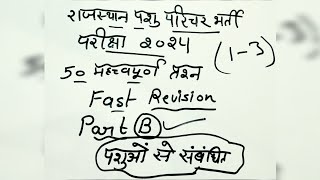 राजस्थान पशु परिचर भर्ती
परीक्षा २०२५ (1-3)
50 महत्वपूर्ण प्रश्न
Fast Revision
Part B
पशुओं से संबंधित